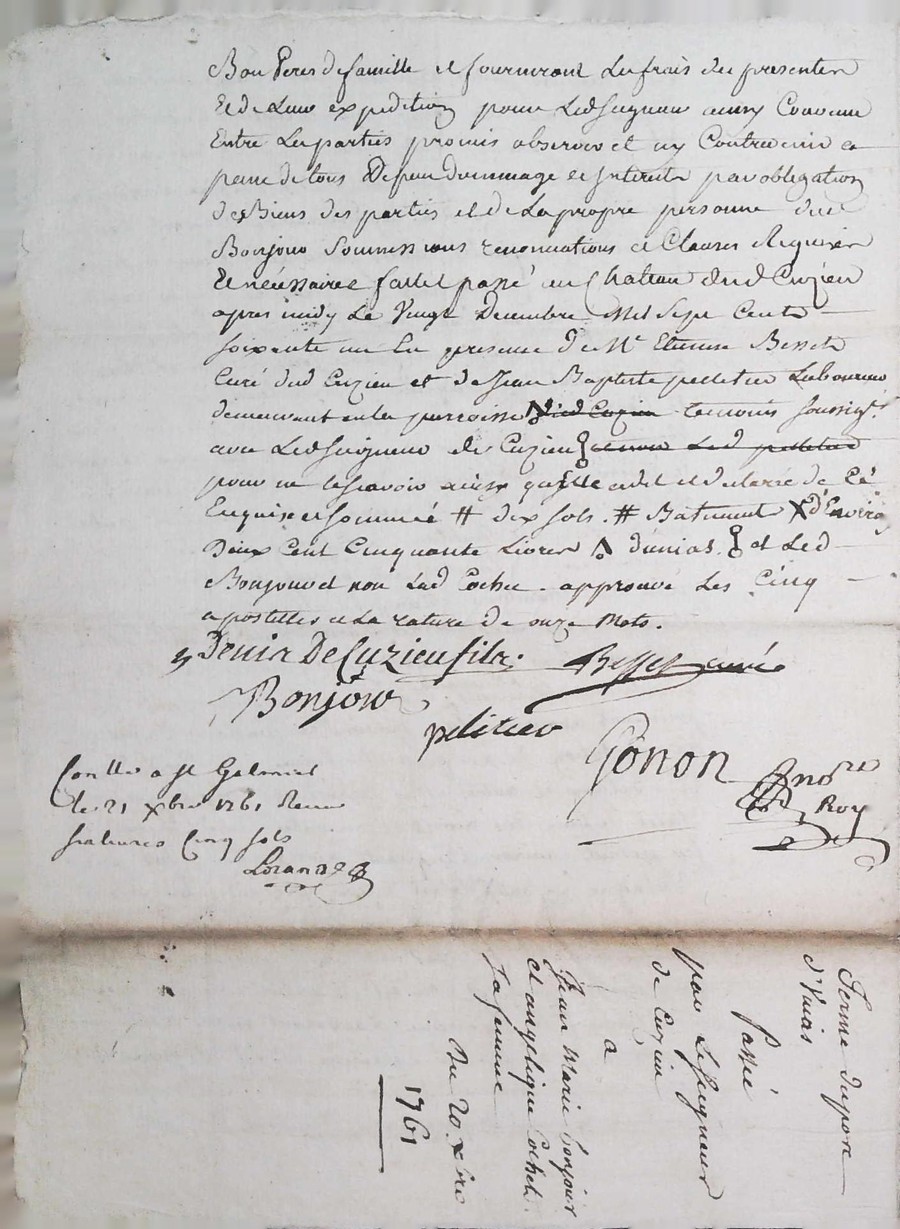 Bon Peres de famille et fourniront Les frais des presentes
Et de Leur expedition pour Ledseigneur ainsy Convenu
Entre Les parties promis observer et ny Contrevenir a
peine de tous Depens dommage et Interets par obligation
des Biens des parties et de La propre personne dud
Bonjour Soumissions renonciations et Clauses Requises
Et nécessaires fait et passé au Chateau dud Cuzieu
apres midy Le Vingt Decembre Mil Sept Cents
soixante un En presence de Mr Etienne Besset
Curé dud Cuzieu et de Jean Baptiste pelletier Laboureur
demeurant en la parroisse dud Cuzieu temoins soussignés
avec Ledseigneur de Cuzieu et non Led pelletier
pour ne le scavoir ainsy qu'elle a dit et declaré de Ce
Enquise et sommée # dix sols. # Batiment X d'Environ
Deux Cent Cinquante Livres d'unias. et Led
Bonjour et non Lad Cochet. approuvé Les Cinq
apostilles et La rature de onze Mots.
Denis De Cuzieu fils. Besset curé
Bonjour
pelitier
Gonon
No.re
Roy
Conllé a St Galmier
le 21 xbre 1761 Reçu
Cinq sols
Ferme du port
d'Unias
Passé
par Le seigneur
de Cuzieu
a
Jean Marie Bonjour
et angelique Cochet
sa femme
Du 20 xbre
1761